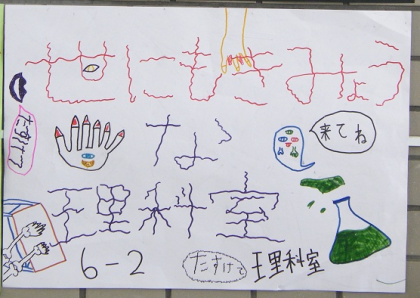 世にもきみょう
な
理科室
たすけて
来てね
6-2
たすけて
理科室